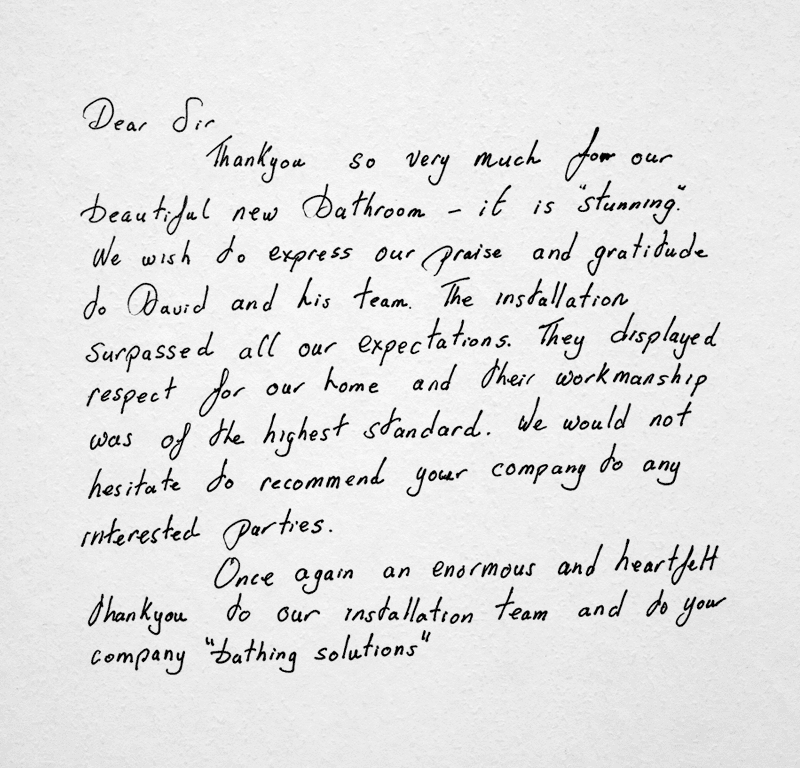 Dear Sir
Thankyou so very much for our
beautiful new Bathroom - it is "stunning".
We wish to express our praise and gratitude
to David and his team. The installation
surpassed all our expectations. They displayed
respect for our home and their workmanship
was of the highest standard. We would not
hesitate to recommend your company to any
interested parties.
Once again an enormous and heartfelt
thankyou to our installation team and to your
company "bathing solutions"